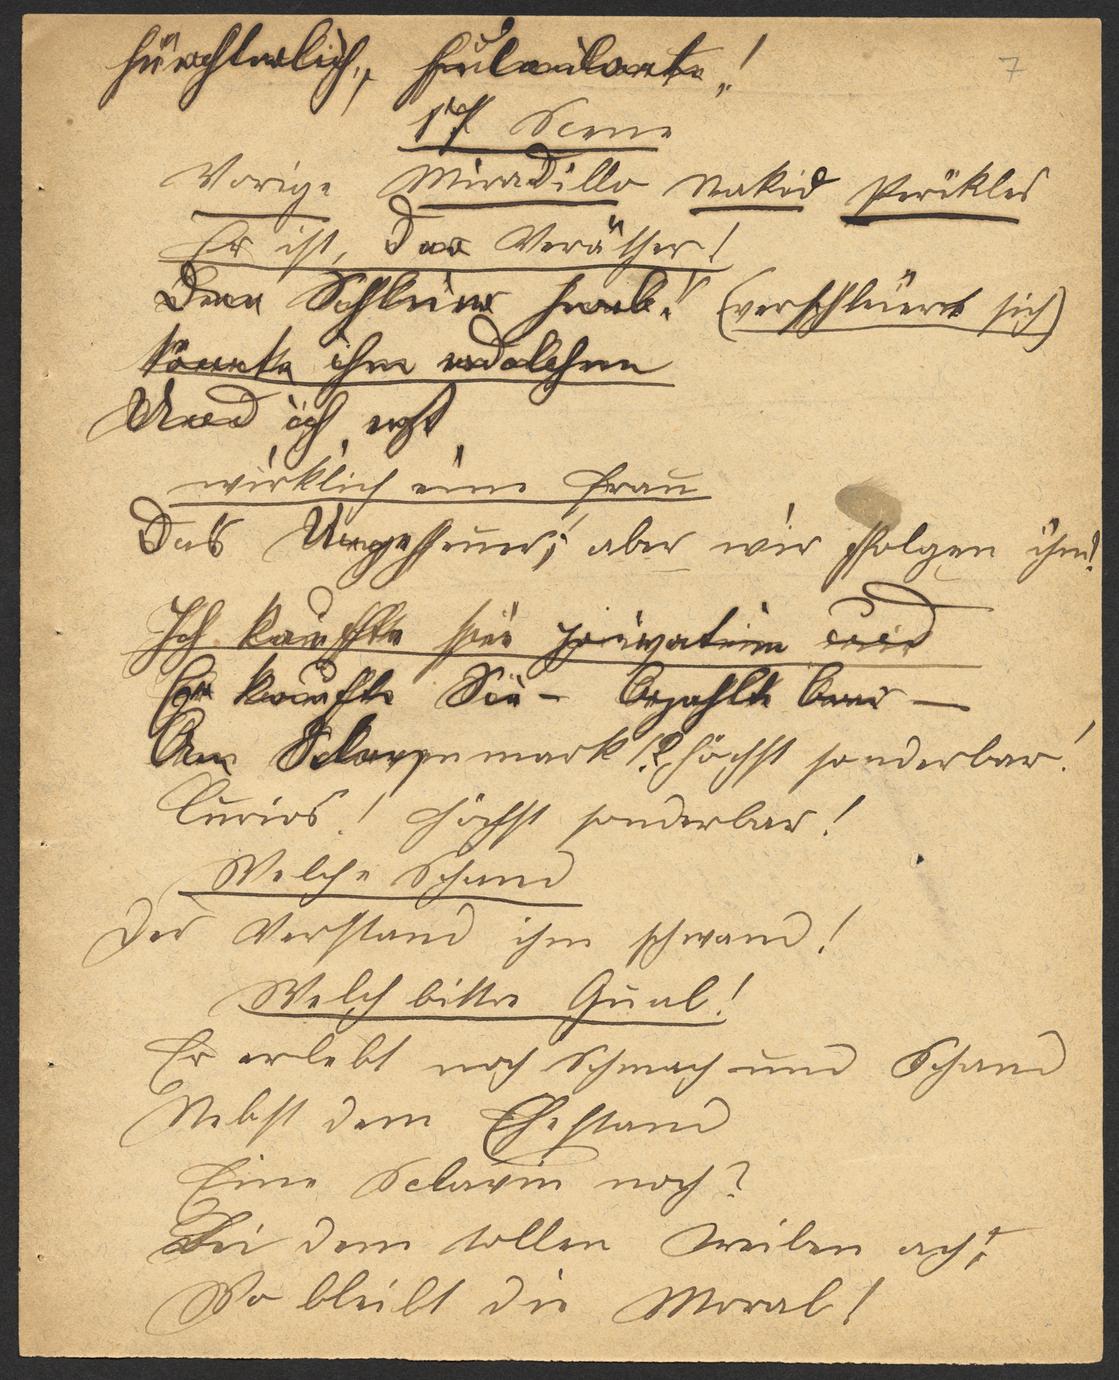 fürchterlich,
7
17 Scene
Vorige Miradillo Nakid Perikles
Er ist, der Veräther!
Den Schleier herab! (verschleiert sich)
könnte ihn erdolchen
Und ich erst
wirklich eine Frau
Das Ungeheuer! aber wir folgen ihm!
Ich kaufte sie privatim und
Er kaufte Sie – bezahlte baar –
Am Sclavenmark!? höchst sonderbar!
Curios! höchst sonderbar!
Welche Schand
Der Verstand ihm schwand!
Welch bittre Qual!
Er erlebt noch Schmach und Schand
Nebst dem Ehestand
Eine Sclavin noch?
Bei dem tollen Treiben ach!
Wo bleibt die Moral!